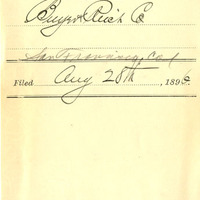 Buyer Reich Co
San Francisco, Cal
Filed Aug 28th, 189